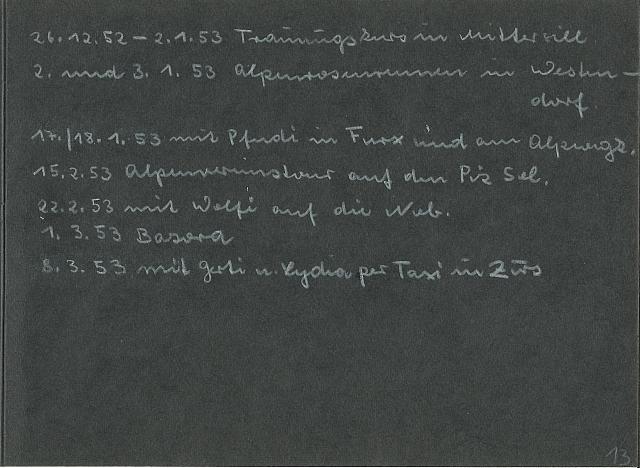 26.12.52 – 2.1.53 Trainingskurs in Mittersill
2. und 3. 1. 53 Alpenrosenrennen in Westen-
dorf.
17./18. 1. 53 mit Pfudi in Furx und am Alpwegk.
15.2.53 Alpenvereinstour auf den Piz Sol.
22.2.53 mit Wolfi auf die Nob.
1. 3.53 Bazora
8. 3. 53 mit Gerti u. Lydia per Taxi in Zürs
13